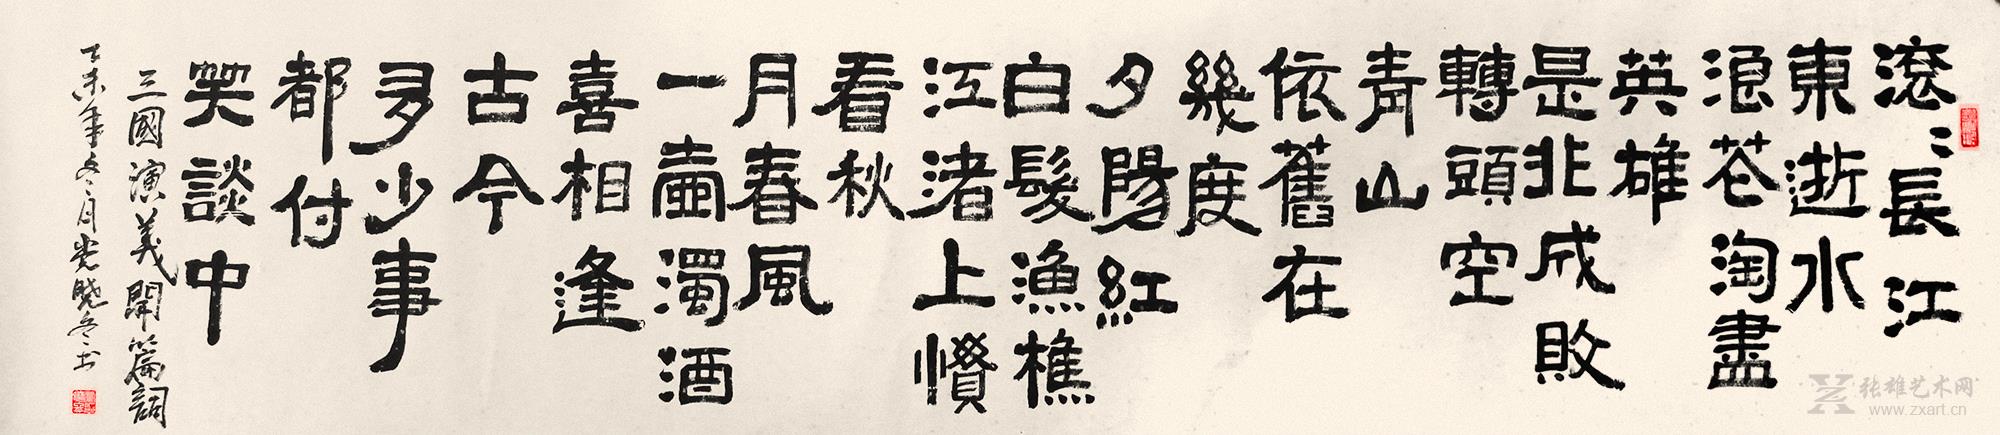 滚〻長江
東逝水
浪花淘盡
英雄
是非成敗
轉頭空
青山
依舊在
幾度
夕陽紅
白髮漁樵
江渚上慣
看秋
月春風
一壺濁酒
喜相逢
古今
多少事
都付
笑談中
三國演義開篇詞
乙未年冬月曉冬书
张雄艺术网
www.zxart.cn